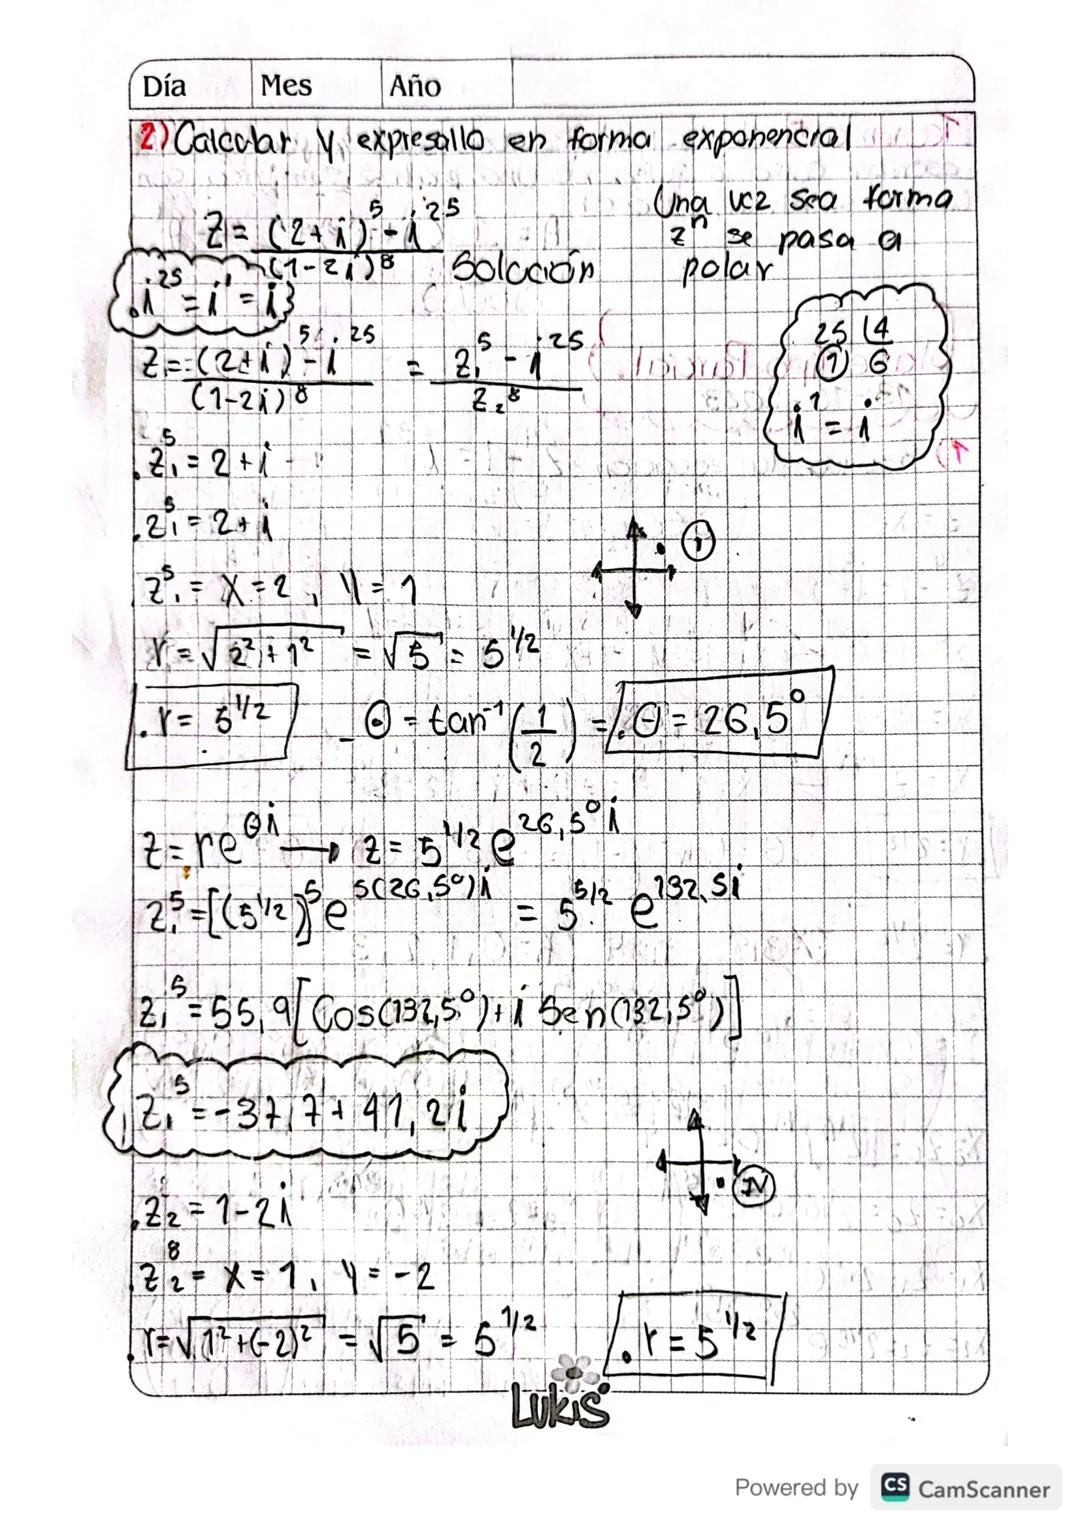 Día Mes Año
2) Calcular y expresallo en forma exponencial
Z = (2+i)⁵ - i²⁵ / (1-2i)⁸ Solución
Una vez sea forma
zⁿ se pasa a
polar
.i²⁵ = i¹ = i
25 | 4
1 6
i¹ = i
Z = (2+i)⁵ - i²⁵ / (1-2i)⁸ = Z₁⁵ - i²⁵ / Z₂⁸
.Z₁⁵ = 2+i
.Z₁⁵ = 2+i
I
.Z₁⁵ = X = 2, Y = 1
r = √(2²+1²) = √5 = 5^1/2
.r = 5^1/2 _ θ = tan⁻¹(1/2) = .θ = 26,5°
Z = re^θi → Z = 5^1/2 e^26,5°i
Z₁⁵ = [(5^1/2)]⁵ e^5(26,5°)i = 5^5/2 e^132,5i
Z₁⁵ = 55,9[Cos(132,5°) + i Sen(132,5°)]
Z₁⁵ = -37,7 + 41,2i
.Z₂ = 1-2i
IV
.Z₂⁸ = X = 1, Y = -2
.r = √(1²+(-2)²) = √5 = 5^1/2 .r = 5^1/2
LUKIS
Powered by CS CamScanner